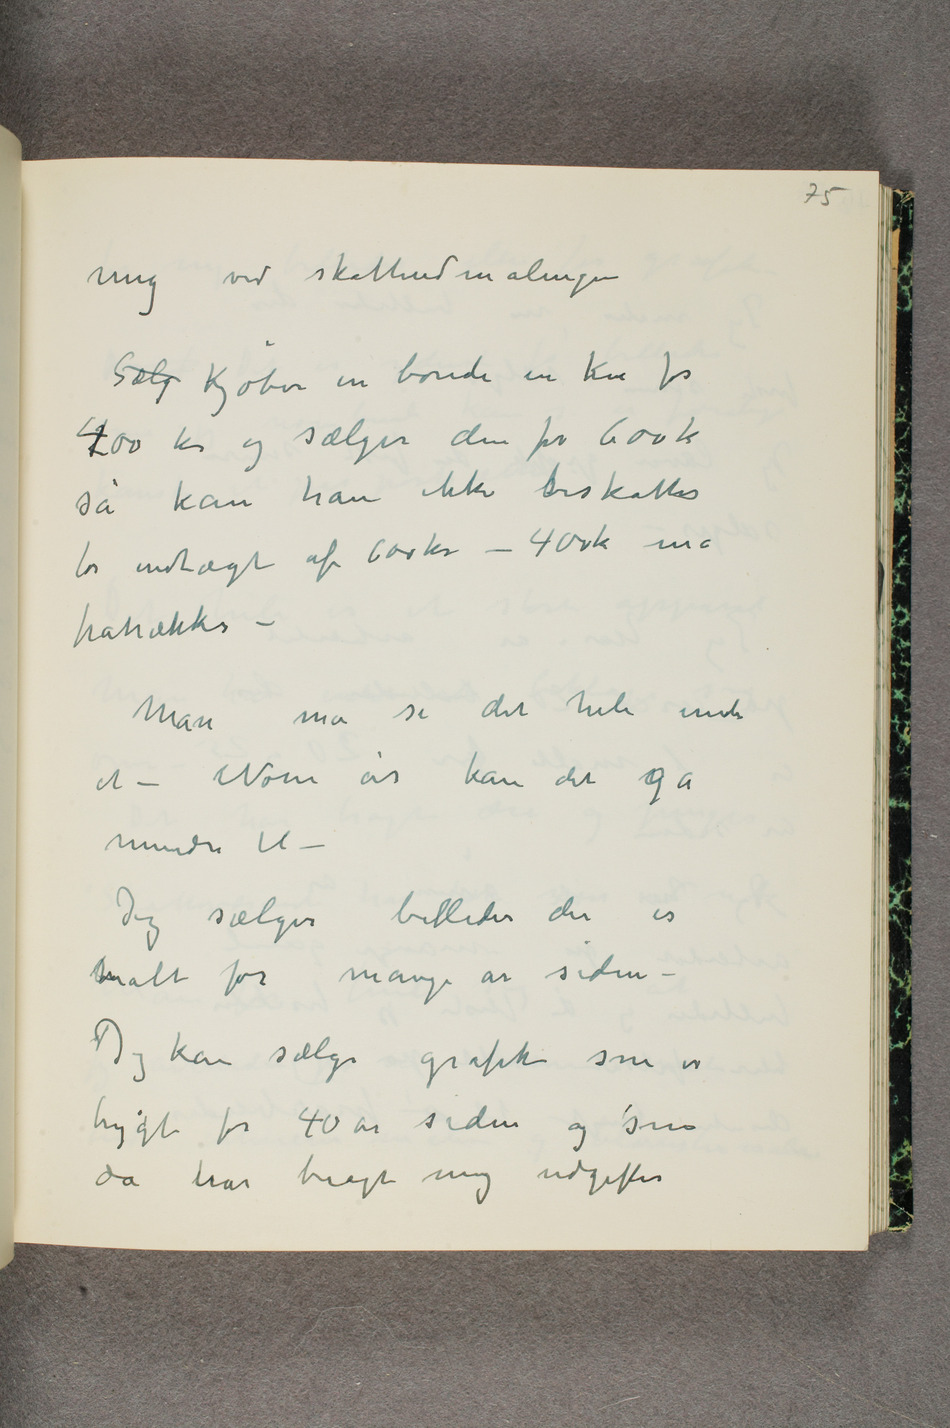 75
mig ved skatteudmålingen
Sælg Kjøber en bonde en ku for
400 kr og sælger den for 600 k
så kan han ikke beskattes
for indtægt af 600 kr – 400 k må
fratrækkes –
Man må se det hele under
et – Noen år kan det gå
mindre til –
Jeg sælger billeder der er
malt for mange år siden –
Jeg kan sælge grafik som er
trygt for 40 år siden og som
da har bragt mig udgifter